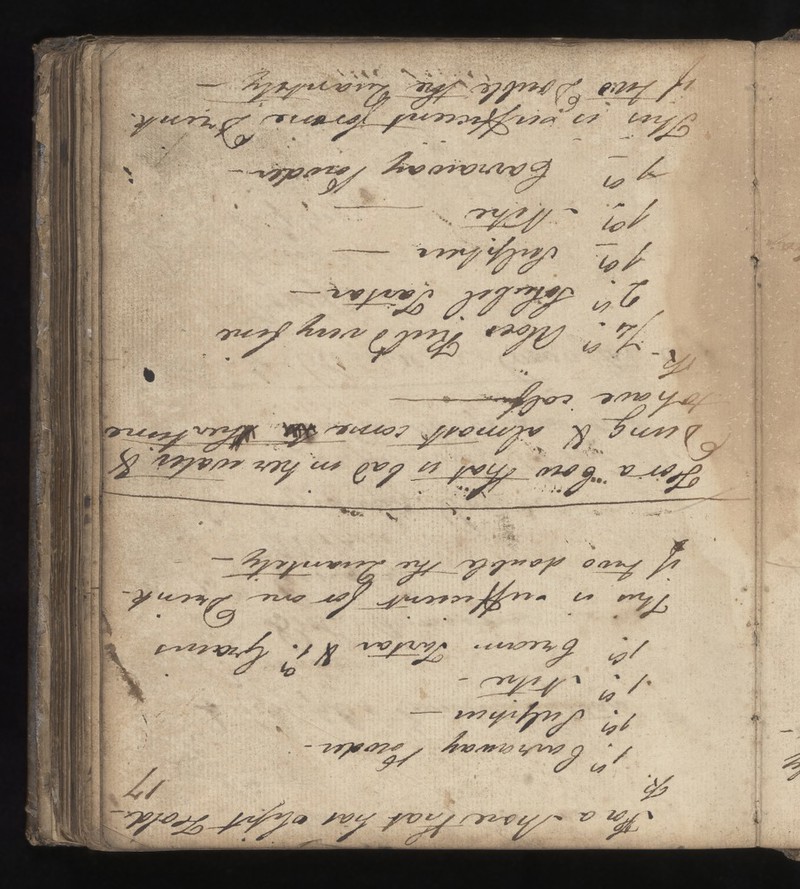 For a Mare that has slipt Foald -
17
R.
1 oz Carraway Powder -
1 oz Sulphur —
1 oz Nitre -
1 oz Cream Tartar & 1 oz Grains
This is sufficient for one Drink -
if two double the Quantety -
For a Cow that is bad in her water &
Dung & almost come her time
to have calf —
R - ½ oz Aloes Rub'd very fine
2 oz Solubel Tartar —
1 oz Sulphur —
1 oz Nitre —
1 oz Carraway Powder -
This is sufficient for one Drink.
if two Double the Quantety —